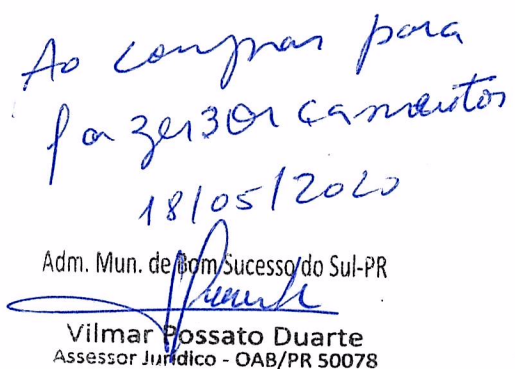 Ao compras para
fazer 3 orçamentos
18/05/2020
Adm. Mun. de Bom Sucesso do Sul-PR
Vilmar Possato Duarte
Assessor Jurídico - OAB/PR 50078